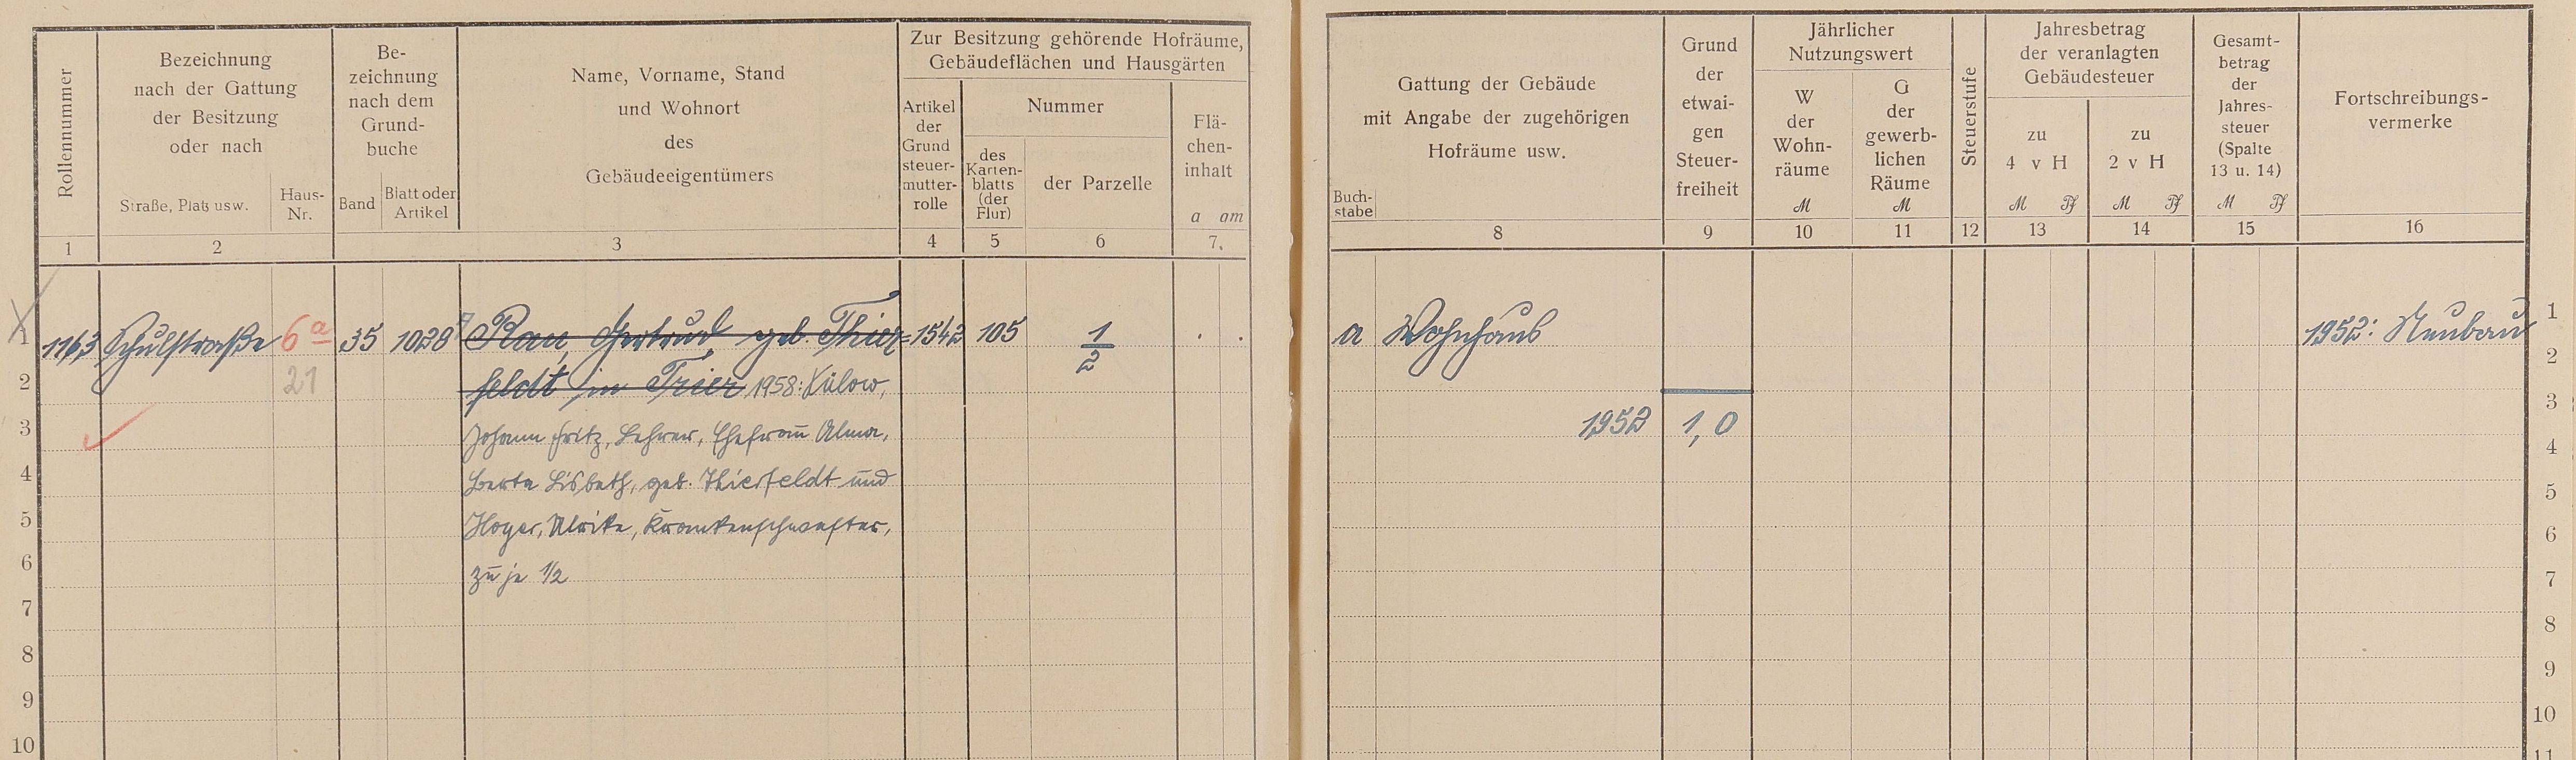 Rollennummer
Bezeichnung
nach der Gattung
der Besitzung
oder nach
Straße, Platz usw.
Haus-
Nr.
Be-
zeichnung
nach dem
Grund-
buche
Band
Blatt oder
Artikel
Name, Vorname, Stand
und Wohnort
des
Gebäudeeigentümers
Zur Besitzung gehörende Hofräume,
Gebäudeflächen und Hausgärten
Artikel
der
Grund
steuer-
mutter-
rolle
Nummer
des
Karten-
blatts
(der
Flur)
der Parzelle
Flä-
chen-
inhalt
a qm
1 2 3 4 5 6 7.
1 1163 Schulstraße 6a 35 1028 Rau, Gertrud geb. Thier= 1542 105 1/2 . .
2 21 feldt in Trier 1958: Xülow,
3 Johann Fritz, Lehrer, Ehefrau Alma,
4 Berta Lisbeth, geb. Thierfeldt und
5 Hoyer, Ulrike, Krankenschwester,
6 zu je 1/2
7
8
9
10
Gattung der Gebäude
mit Angabe der zugehörigen
Hofräume usw.
Buch-
stabe
Grund
der
etwai-
gen
Steuer-
freiheit
Jährlicher
Nutzungswert
W
der
Wohn-
räume
M
G
der
gewerb-
lichen
Räume
M
Steuerstufe
Jahresbetrag
der veranlagten
Gebäudesteuer
zu
4 v H
M Pf
zu
2 v H
M Pf
Gesamt-
betrag
der
Jahres-
steuer
(Spalte
13 u. 14)
M Pf
Fortschreibungs-
vermerke
8 9 10 11 12 13 14 15 16
a Wohnhaus 1952: Neubau 1
2
3
1952 1,0 4
5
6
7
8
9
10
11